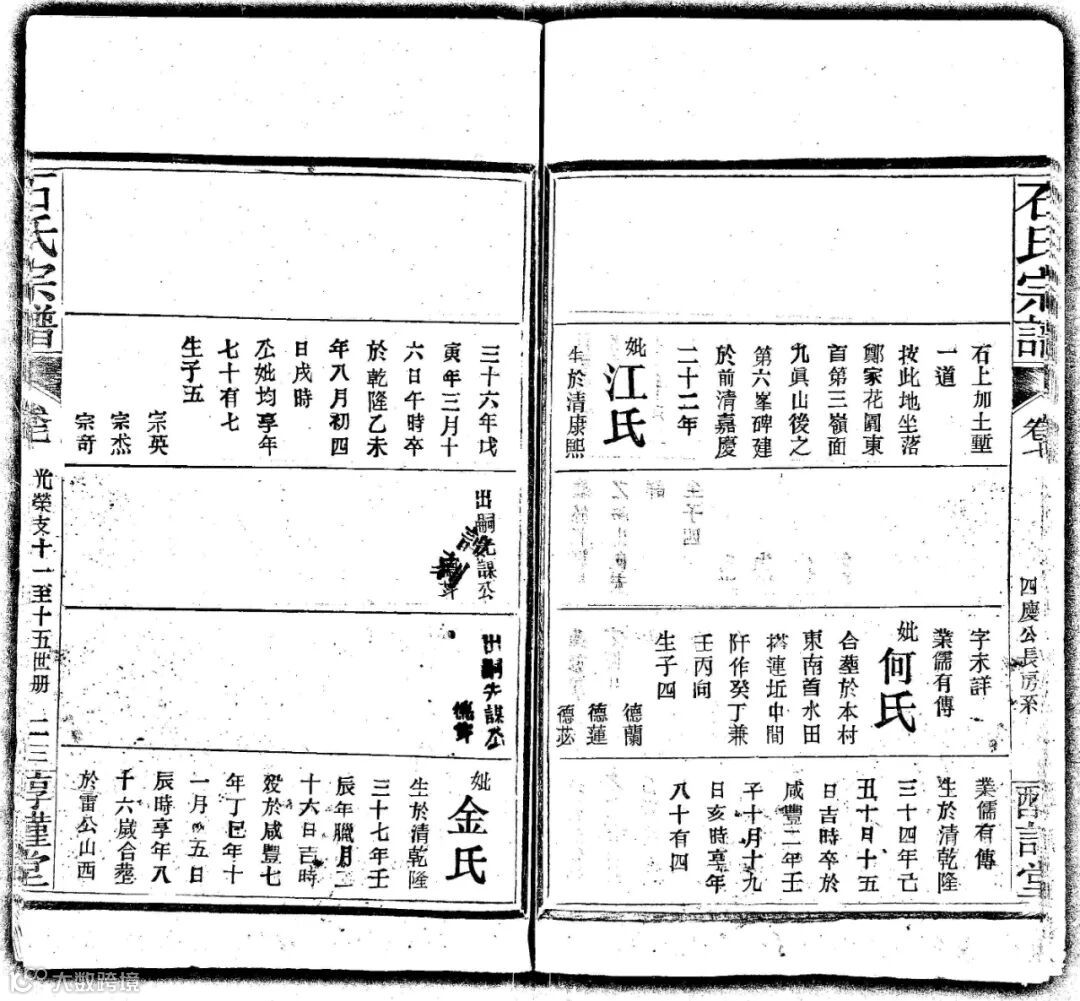 石氏宗譜
卷七
四慶公長房系
西詰堂
石上加土塹
一道
按此地坐落
鄭家花園東
首第三嶺面
九眞山後之
第六峯碑建
於前清嘉慶
二十二年
妣江氏
生於清康熙
字未詳
業儒有傳
妣何氏
合塟於本村
東南首水田
塔連坵中間
阡作癸丁兼
壬丙向
生子四
德蘭
德蓮
德苾
業儒有傳
生於清乾隆
三十四年己
丑十月十五
日吉時卒於
咸豐二年壬
子十月十九
日亥時享年
八十有四
三十六年戊
寅年三月十
六日午時卒
於乾隆乙未
年八月初四
日戌時
公妣均享年
七十有七
生子五
宗英
宗杰
宗奇
出嗣先謀公
出嗣先謀公
妣金氏
生於清乾隆
三十七年壬
辰年臘月二
十六日吉時
歿於咸豐七
年丁巳年十
一月 五日
辰時享年八
十六歲合塟
於雷公山西
石氏宗譜
卷七
光榮支十一至十五世册
二三
享堂
大数跨境